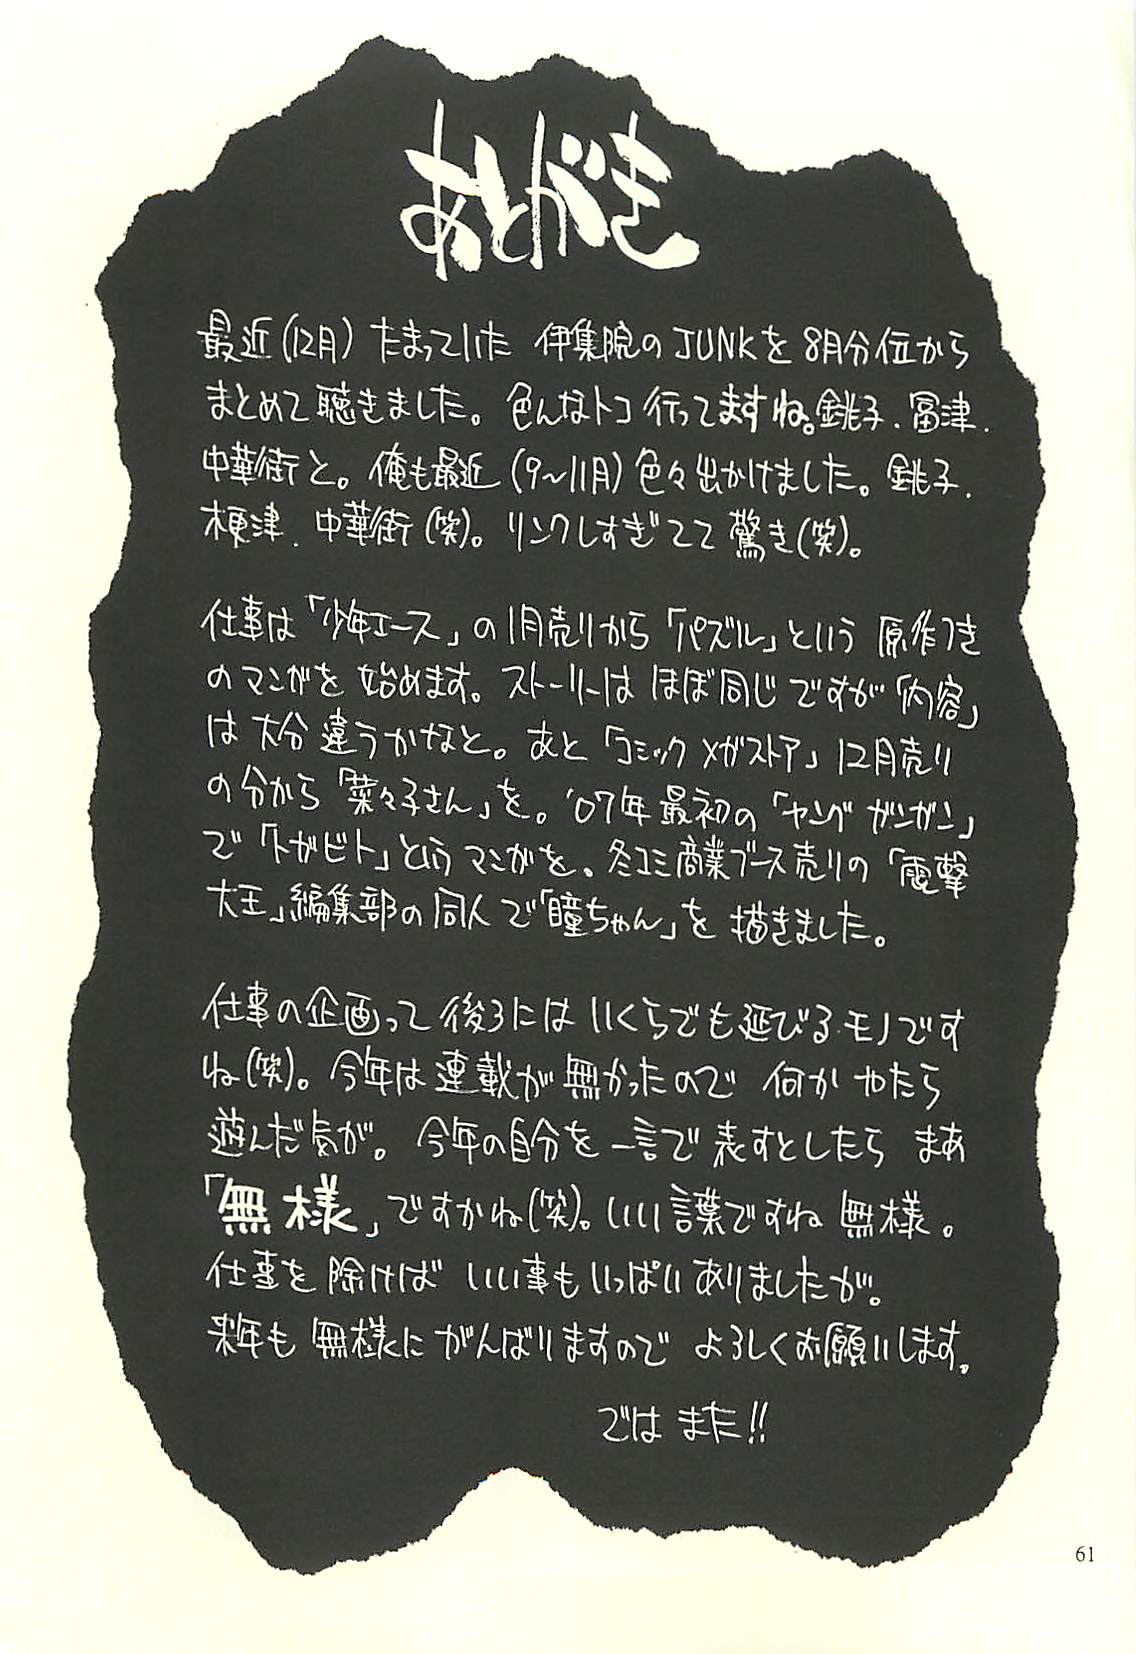 あとがき
最近(12月)たまっていた 伊集院のJUNKを8月分位から
まとめて聴きました。色んなトコ行ってますね。銚子．冨津．
中華街と。俺も最近(9〜11月)色々出かけました。銚子．
木更津．中華街(笑)。リンクしすぎてて驚き(笑)。
仕事は「少年エース」の1月売りから「パズル」という原作つき
のマンガを始めます。ストーリーはほぼ同じですが「内容」
は大分違うかなと。あと「コミックメガストア」12月売り
の分から「菜々子さん」を。'07年最初の「ヤングガンガン」
で「トガビト」というマンガを。冬コミ商業ブース売りの「電撃
大王」編集部の同人で「瞳ちゃん」を描きました。
仕事の企画って後ろにはいくらでも延びるモノです
ね(笑)。今年は連載が無かったので何かやたら
遊んだ気が。今年の自分を一言で表すとしたらまあ
「無様」ですかね(笑)。いい言葉ですね無様。
仕事を除けばいい事もいっぱいありましたが。
来年も無様にがんばりますのでよろしくお願いします。
ではまた!!
61